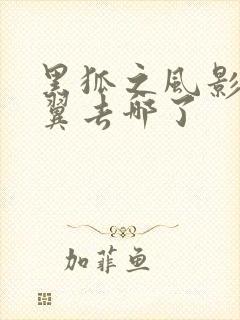 黑狐之風影
翼去哪了
加菲鱼